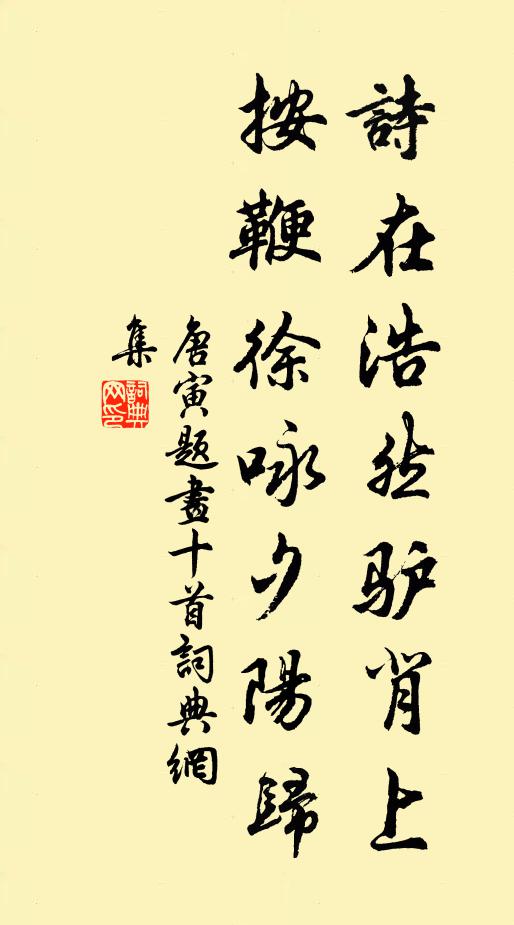 詩在浩然驴背上
按鞭徐咏夕陽歸
唐寅題畫十首詞典網
集
詞典网印